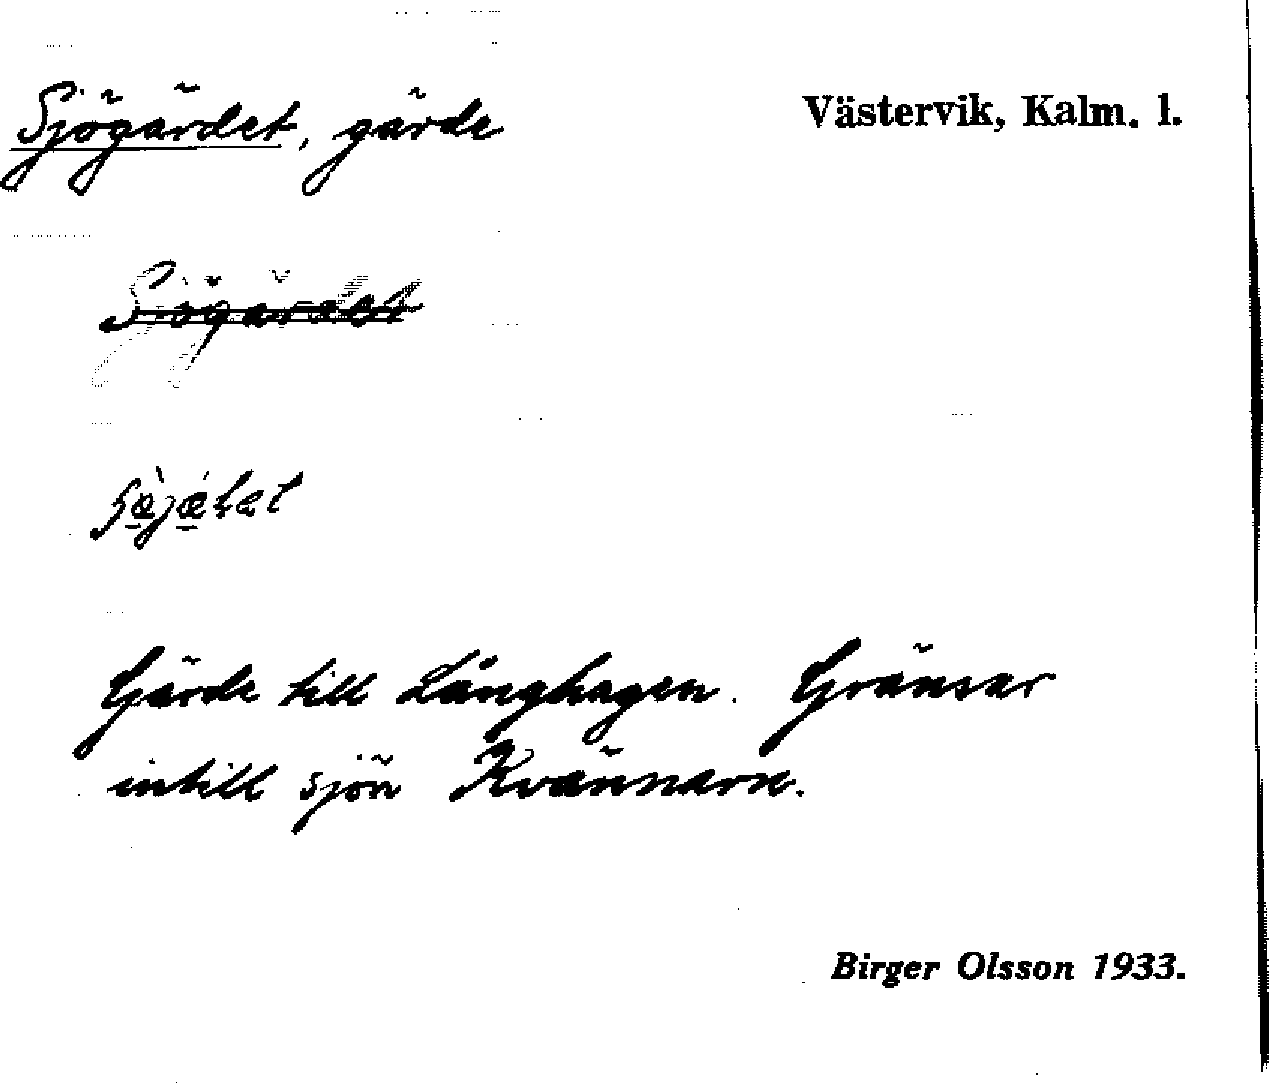 Sjögärdet, gärde
Västervik, Kalm. l.
Sjögärdet
Gärde till Långhagen. Gränsar
intill sjön Kvännarn.
Birger Olsson 1933.